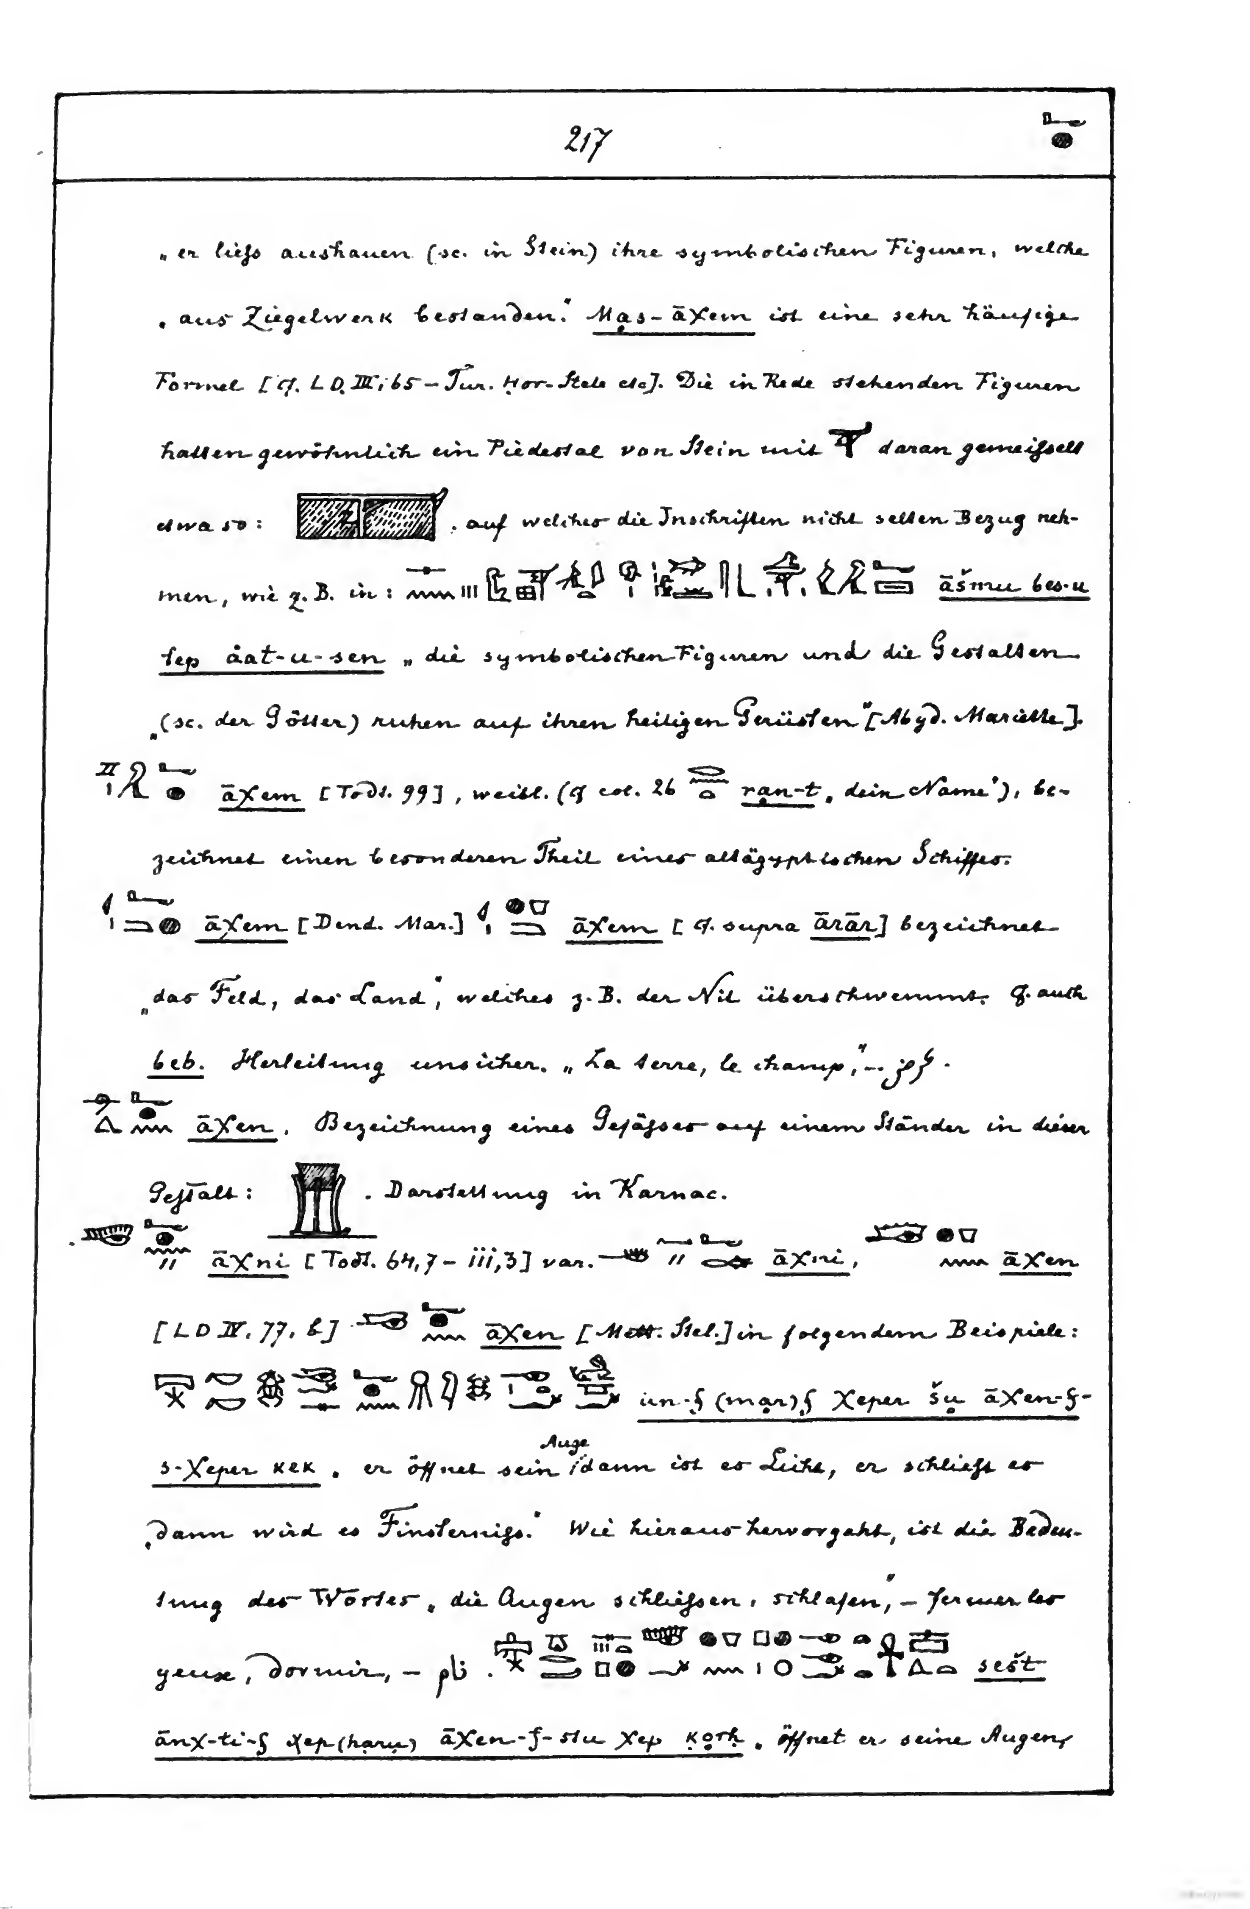 217
„er liess aushauen (sc. in Stein) ihre symbolischen Figuren, welche
„aus Ziegelwerk bestanden." Mas-āχem ist eine sehr häufige
Formel [cf. LD. III, 65 – Tur. Hor-Stele etc]. Die in Rede stehenden Figuren
hatten gewöhnlich ein Piedestal von Stein mit daran gemeisselt
etwa so: . auf welches die Inschriften nicht selten Bezug neh-
men, wie z. B. in: āšmu bes-u
tep åat-u-sen „die symbolischen Figuren und die Gestalten
„(sc. der Götter) ruhen auf ihren heiligen Gerüsten" [Abyd. Mariette].
āχem [Todt. 99], weibl. (cf col. 26 ran-t „dein Name"), be-
zeichnet einen besonderen Theil eines altägyptischen Schiffes.
āχem [Dend. Mar.] āχem [cf. supra ārār] bezeichnet
„das Feld, das Land", welches z. B. der Nil überschwemmt. Cf. auch
beb. Herleitung unsicher. „La terre, le champ", –
āχen. Bezeichnung eines Gefässes auf einem Ständer in dieser
Gestalt: . Darstellung in Karnac.
āχni [Todt. 64,7 – 111,3] var. āχni, āχen
[LD IV. 77. b] āχen [Mett. Stel.] in folgendem Beispiele:
un-f (mar)f χeper šu āχen-f-
s-χeper kek „er öffnet sein Auge dann ist es Licht, er schliesst es
„dann wird es Finsterniss." Wie hieraus hervorgeht, ist die Bedeu-
tung des Wortes „die Augen schliessen, schlafen", – fermer les
yeux, dormir, – . sešt
ānχ-ti-f χep (haru) āχen-f-stu χep korh „öffnet er seine Augen,